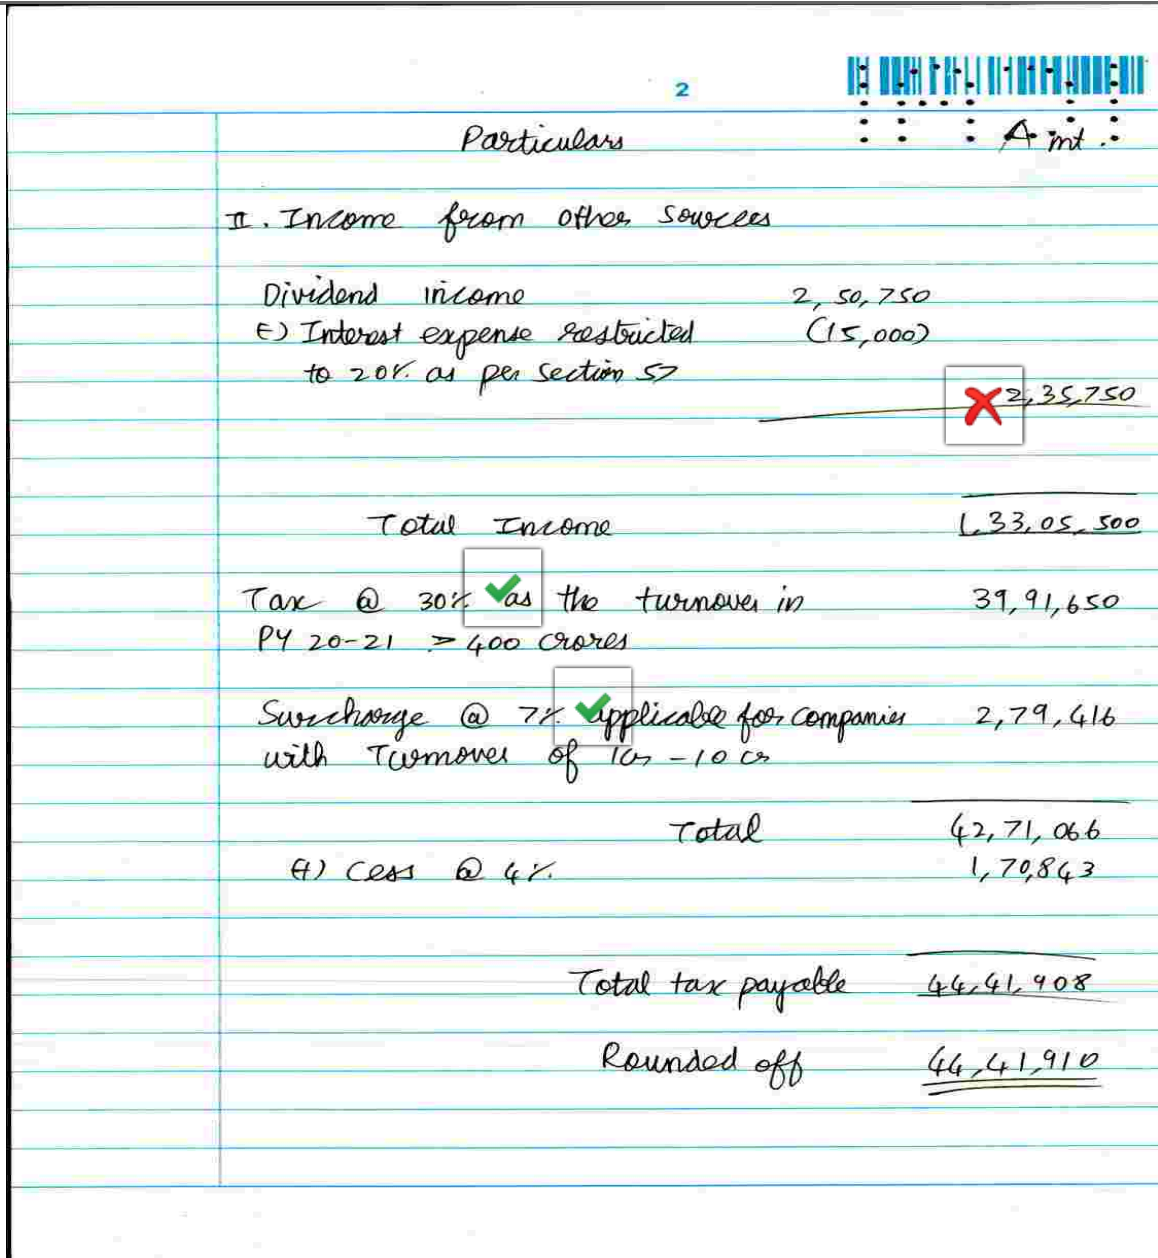 2
Particulars Amt.
II. Income from other sources
Dividend income 2,50,750
(-) Interest expense restricted (15,000)
to 20% as per section 57
2,35,750
Total Income 1,33,05,500
Tax @ 30% as the turnover in 39,91,650
PY 20-21 > 400 crores
Surcharge @ 7% applicable for companies 2,79,416
with Turnover of 1cr - 10 cr
Total 42,71,066
(+) Cess @ 4% 1,70,843
Total tax payable 44,41,908
Rounded off 44,41,910